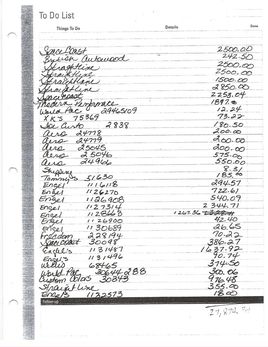 To Do List
Things To Do Details Done
Space Coast 2500.00
242.50
Straightline 2500.00
Straightline 2500.00
Straightline 1500.00
Straightline 2850.00
Spacecoast 2258.04
World Pac 29465109 12.24
75369 73.22
2838 180.50
Aero 24778 200.00
Aero 24779 200.00
Aero 25045 200.00
Aero 25046 575.00
Aero 24946 550.00
Shipping 8.51
Tammy's 51630 185.00
Engel 1116118 294.57
Engel 1126270 722.61
Engel 1126908 540.09
Engel 1127514 2344.71
Engel 1128663 1267.36
Engel 1126900 42.40
Engel 1130689 26.65
Freedom 228194 70.22
Space coast 30098 386.27
Engel's 1131487 1637.92
Engel's 1131496 90.74
68465 374.50
World Pac 30644288 300.06
Custom Colors 30343 976.48
Straight line 355.00
Engel's 1122573 18.00
Follow-up